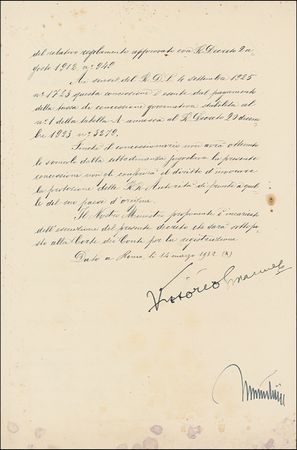 del relativo regolamento approvato con R. Decreto 2 a-
gosto 1912 n° 942
Ai sensi del R. D. L. 4 settembre 1925
n° 1723 questa concessione è esente dal pagamento
della tassa di concessione governativa stabilita al
n° 1 della tabella A annessa al R. Decreto 20 dicem-
bre 1923 n° 3279.
Finché il concessionario non avrà ottenuto
lo svincolo dalla sudditanza la presente
concessione non gli conferirà il diritto d'invocare
la protezione delle RR. Autorità di fronte a quel-
le del suo paese d'origine.
Il Nostro Ministro proponente è incaricato
dell'esecuzione del presente decreto che sarà sottopo-
sto alla Corte dei Conti per la registrazione
Dato a Roma, li 14 marzo 1932 (X)
Vittorio Emanuele
Mussolini